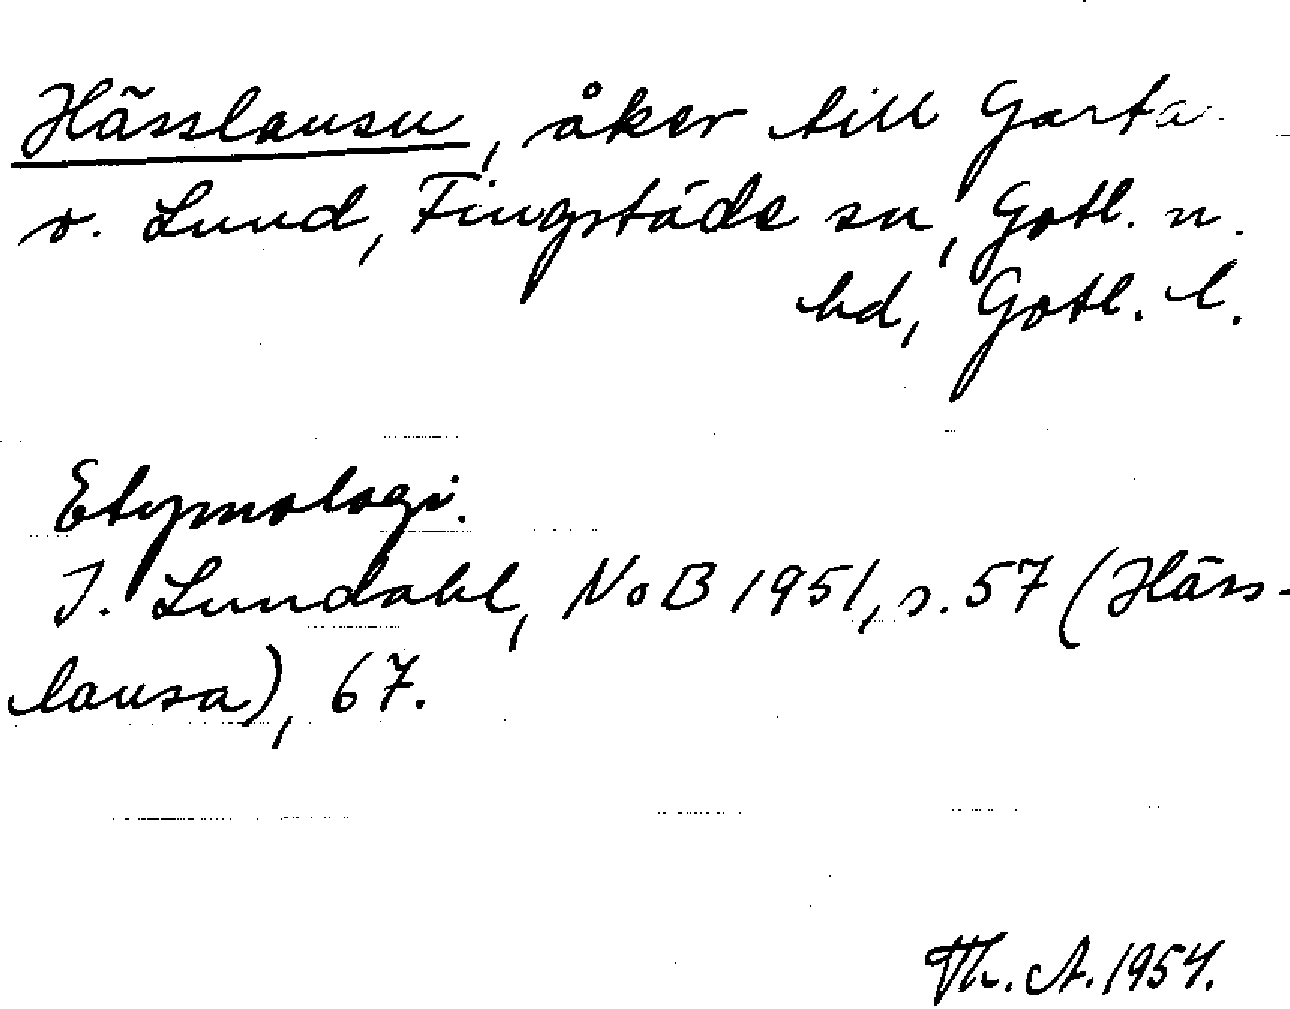 Hässlausu, åker till Garta
o. Lund, Tingstäde sn, Gotl. n.
hd, Gotl. l.
Etymologi.
I. Lundahl, NoB 1951, s. 57 (Häss-
lausa), 67.
Th. A. 1954.